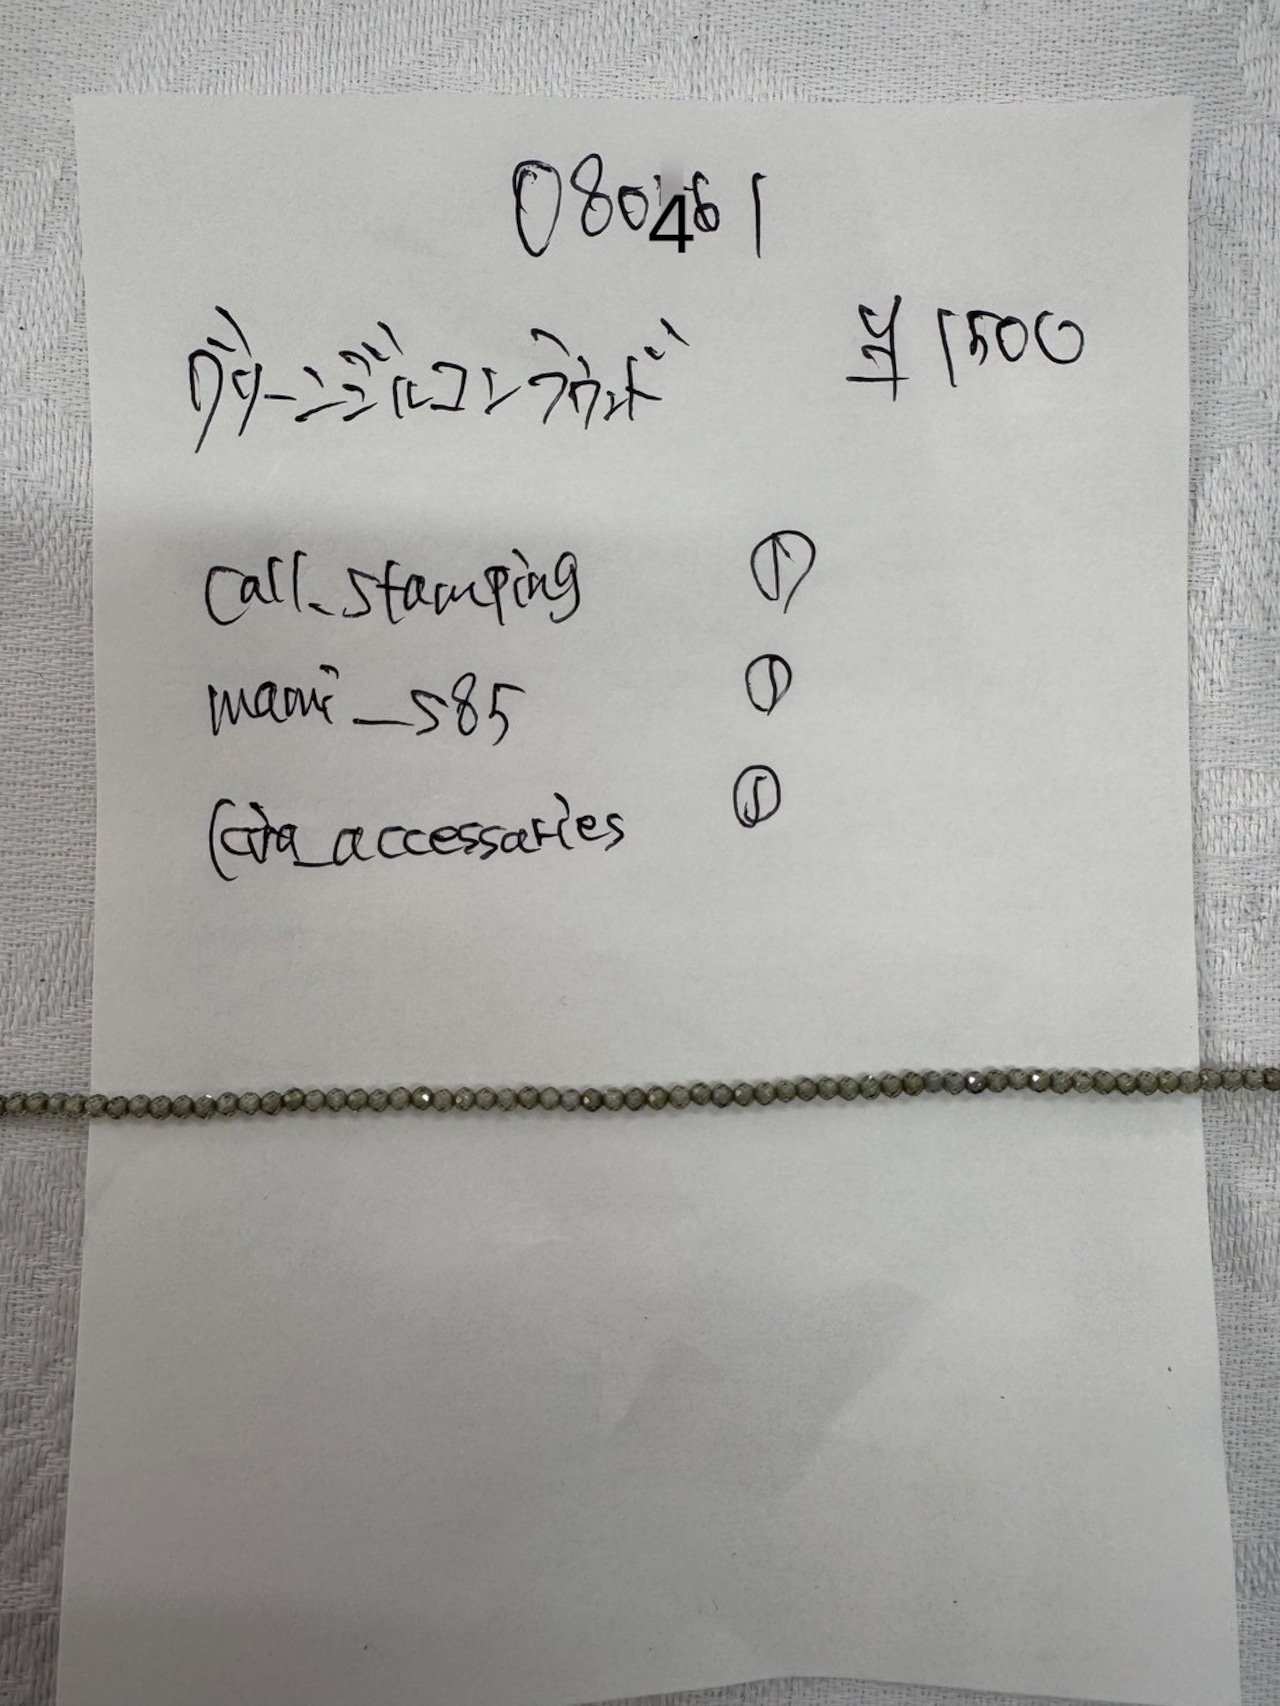 080461
グリーンジルコンラウンド ¥1500
call_stamping ①
mami_s85 ①